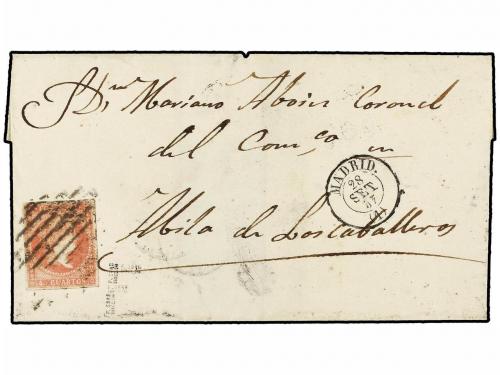 Dn Mariano Aboin Coronel
del Comco en
Abila de Loscaballeros
MADRID.
28
SET
57
(1)
4 CUARTOS